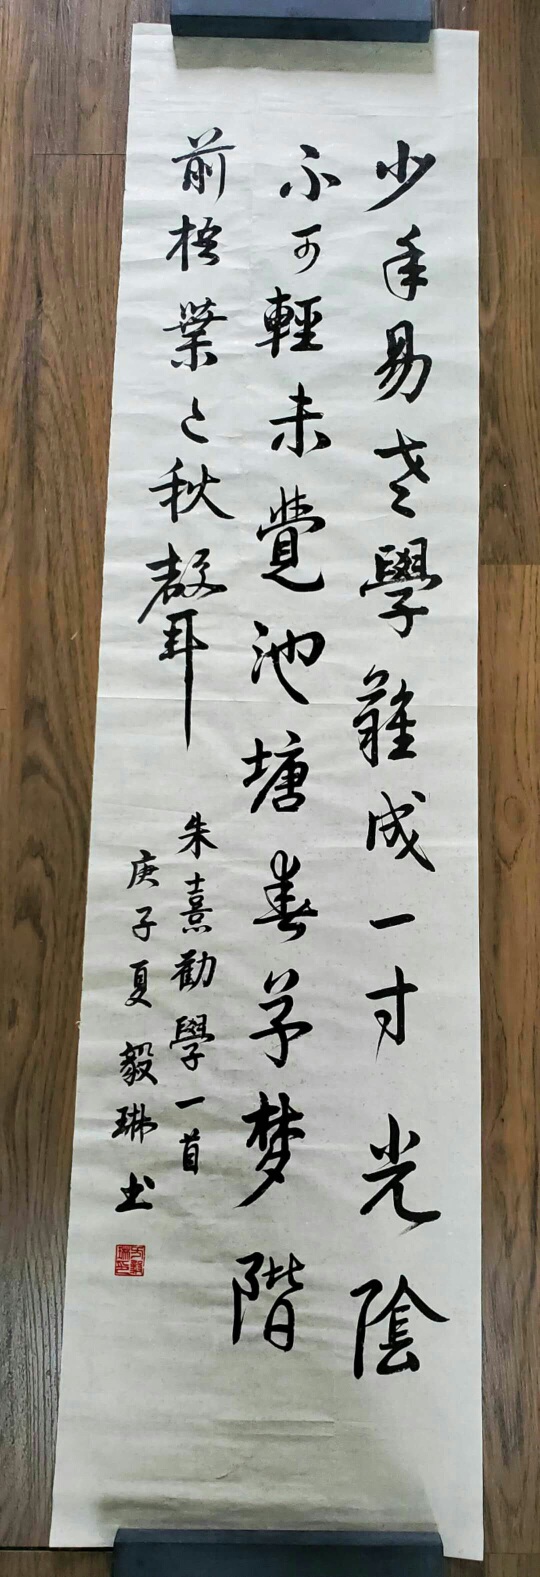 少年易老學難成一寸光陰
不可輕未覺池塘春草梦階
前梧葉已秋聲
朱熹勸學一首
庚子夏毅琳书